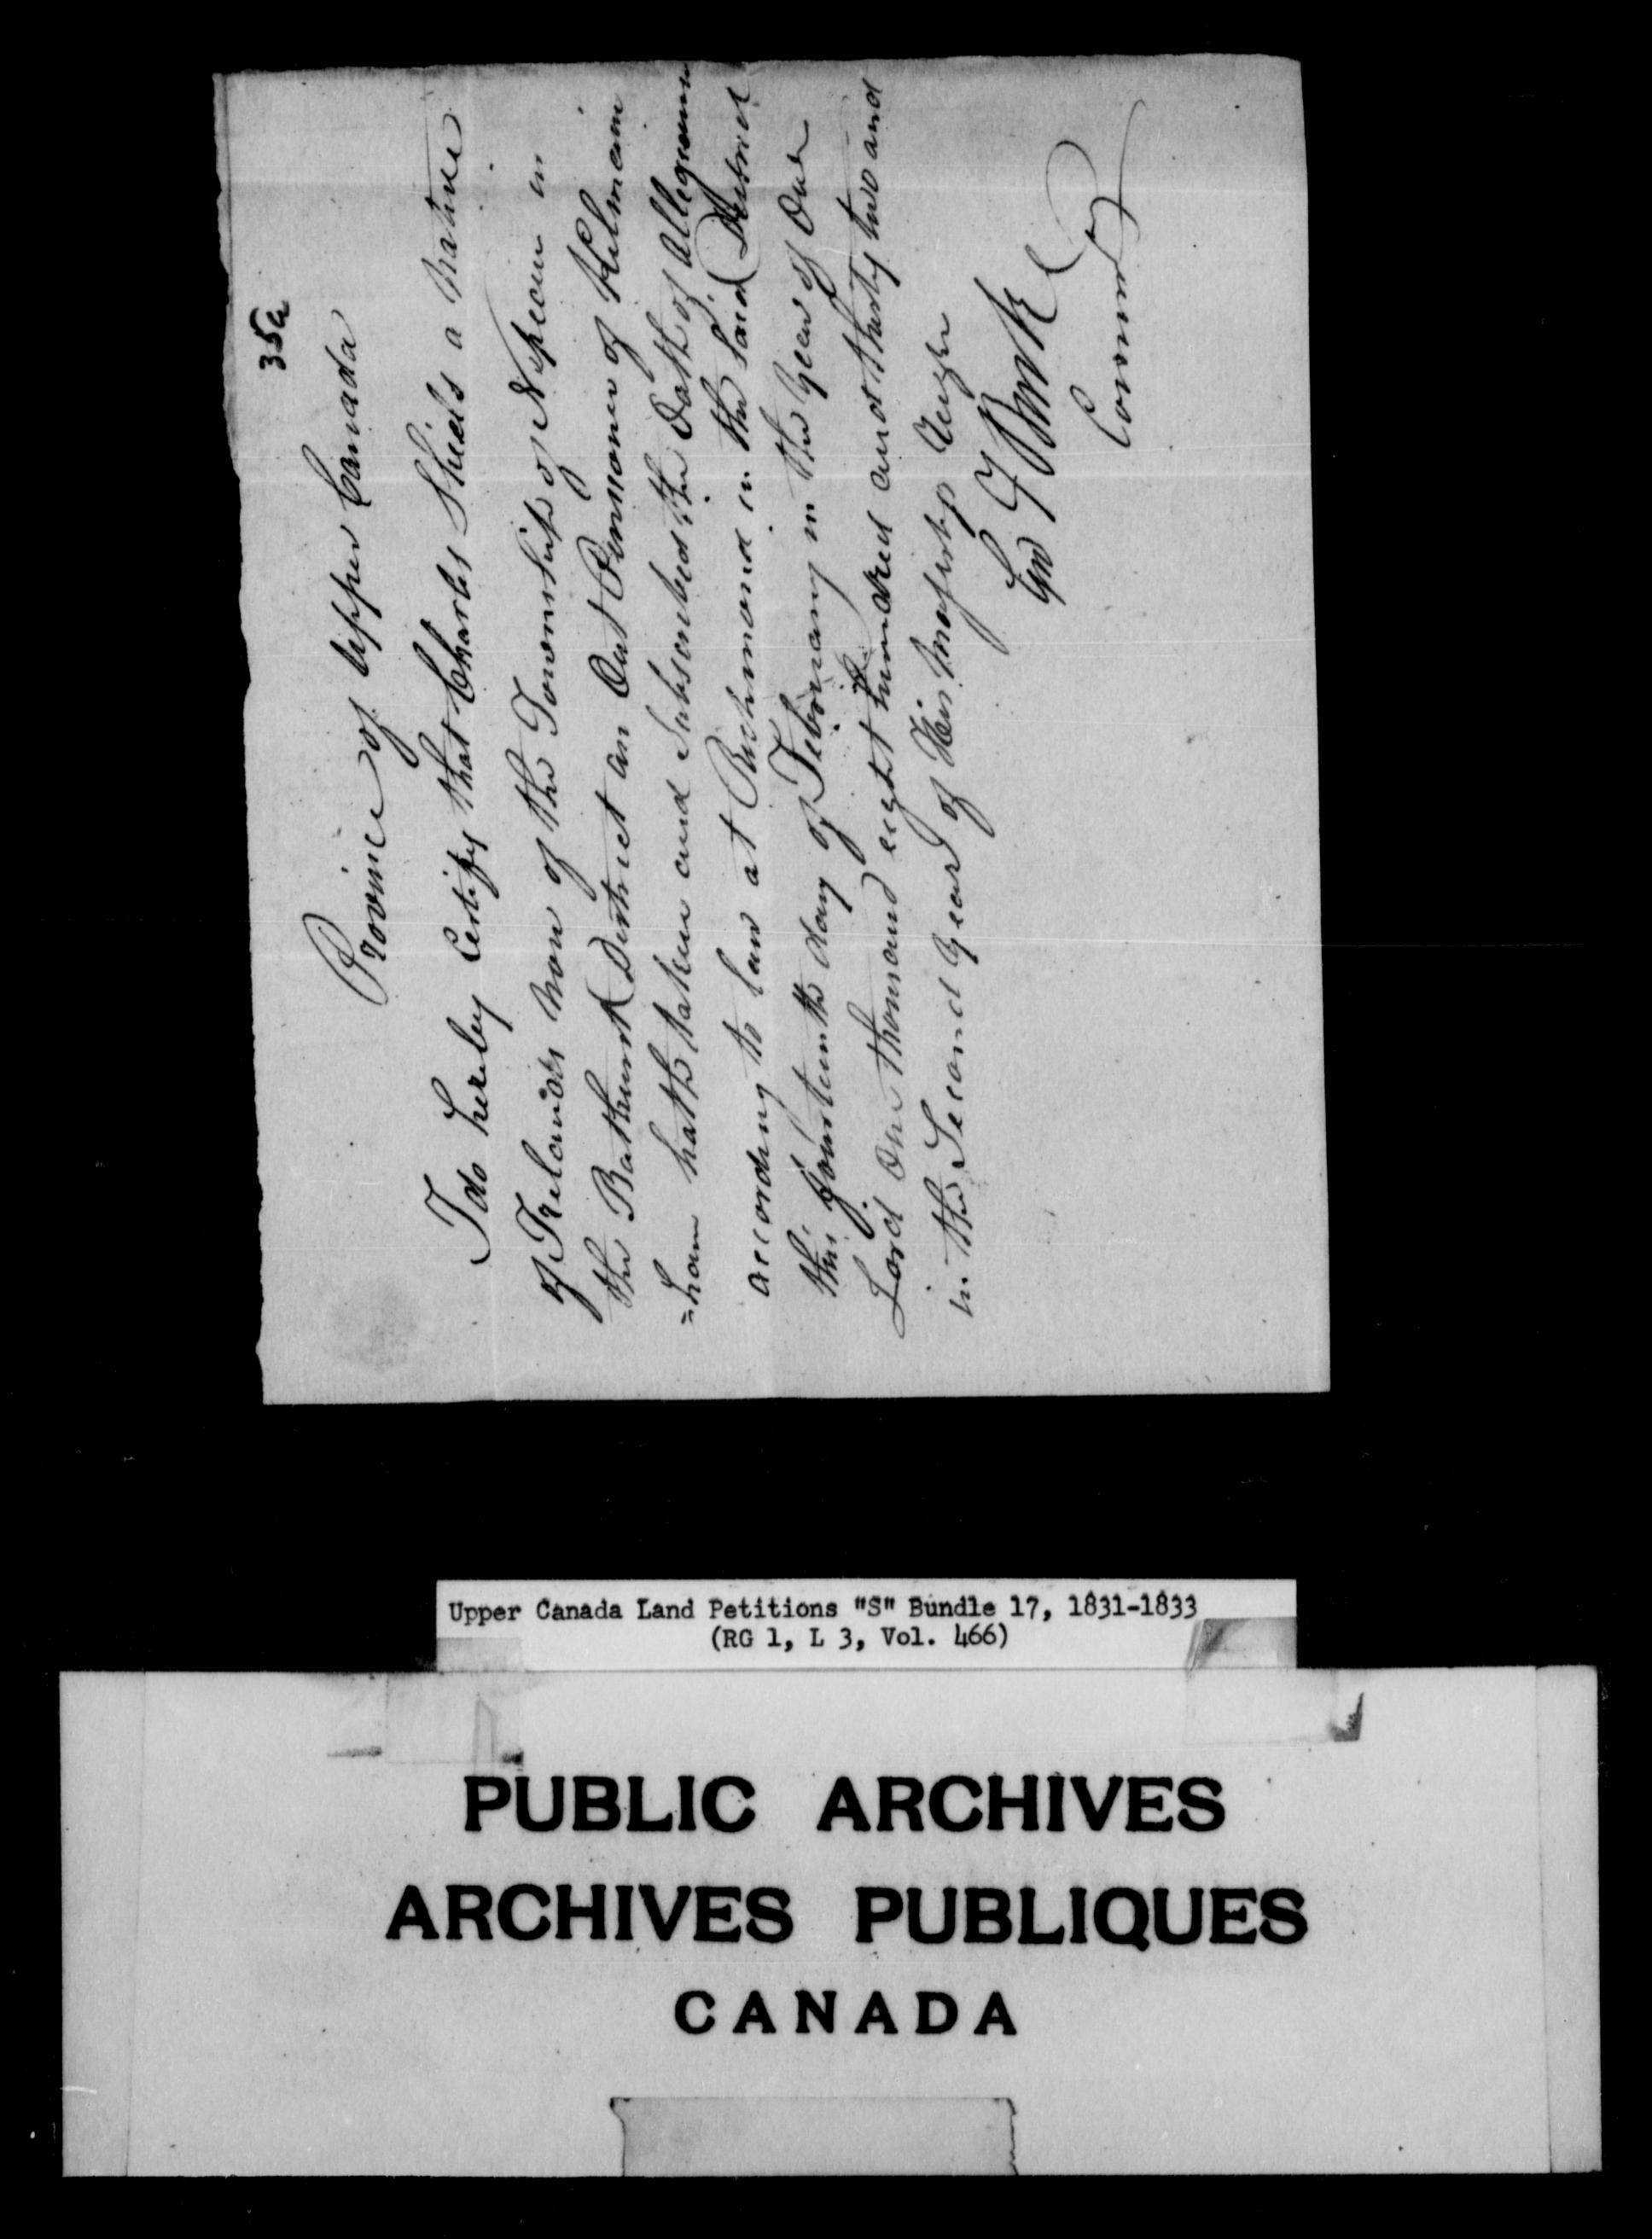 35a
Province of Upper Canada
I do hereby Certify that Charles Shields a Native
of Ireland Now of the Township of Nepean in
the Bathurst District an Out Pensioner of Kilmain
=ham hath taken and Subscribed the Oath of Allegiance
according to Law at Richmond in the Said District
this fourteenth day of February in the Year of Our
Lord One thousand eight hundred and thirty two and
in the Second Year of His Majestys Reign
Geo T Burke
Commr
Upper Canada Land Petitions "S" Bundle 17, 1831-1833
(RG 1, L 3, Vol. 466)
PUBLIC ARCHIVES
ARCHIVES PUBLIQUES
CANADA